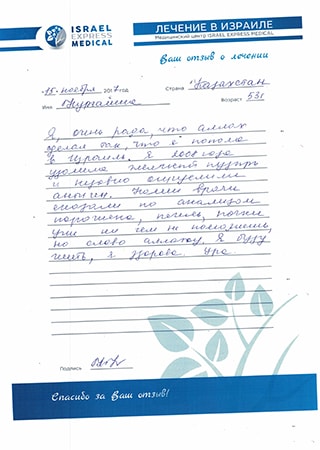 ISRAEL
EXPRESS
MEDICAL
ЛЕЧЕНИЕ В ИЗРАИЛЕ
Медицинский центр ISRAEL EXPRESS MEDICAL
Ваш отзыв о лечении
15 ноября 2017 год Страна Казахстан
Имя Возраст 53
Я, очень рада, что аллах
сделал так, что я попала
в Израиль. Я 2008 года
удалила желчный пузырь
и
Наши врачи
сказали по анализом
печень, почки
уже им чем не поможешь,
но слово аллаху, я буду
жить, я здорова. Ура
Подпись
Спасибо за Ваш отзыв!